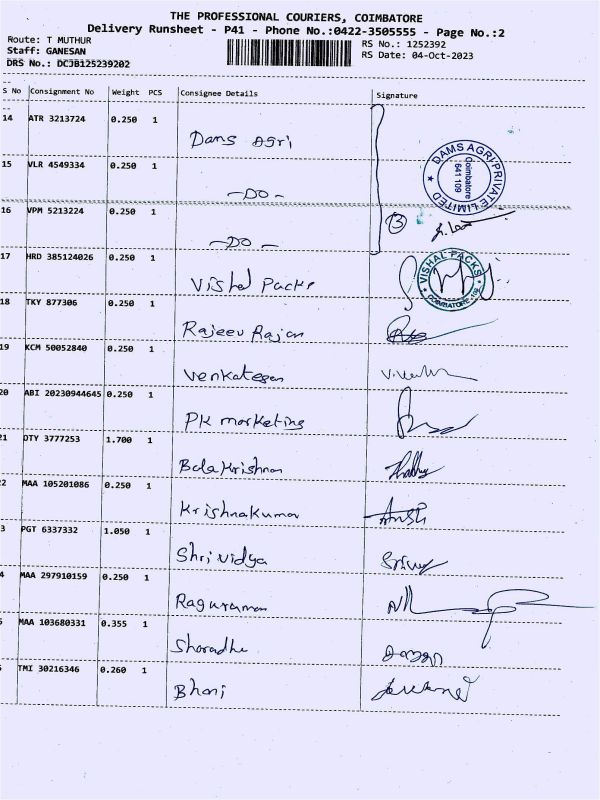 THE PROFESSIONAL COURIERS, COIMBATORE
Delivery Runsheet - P41 - Phone No.:0422-3505555 - Page No.:2
Route: T MUTHUR
RS No.: 1252392
Staff: GANESAN
RS Date: 04-Oct-2023
DRS No.: DCJB125239202
S No Consignment No Weight PCS Consignee Details Signature
14 ATR 3213724 0.250 1 Dams Agri
DAMS AGRI PRIVATE LIMITED
Coimbatore
641 109
15 VLR 4549334 0.250 1 -DO-
16 VPM 5213224 0.250 1 -DO-
3
17 HRD 385124026 0.250 1 Vishal Packs
VISHAL PACKS
18 TKY 877306 0.250 1 Rajeev Rajan
19 KCM 50052840 0.250 1 Venkatesan
20 ABI 20230944645 0.250 1 PK marketing
21 DTY 3777253 1.700 1 Balakrishnan
2 MAA 105201086 0.250 1 Krishnakumar
3 PGT 6337332 1.050 1 Shrividya
4 MAA 297910159 0.250 1 Raguraman
MAA 103680331 0.355 1 Sharadha
TMI 30216346 0.260 1 Bhani